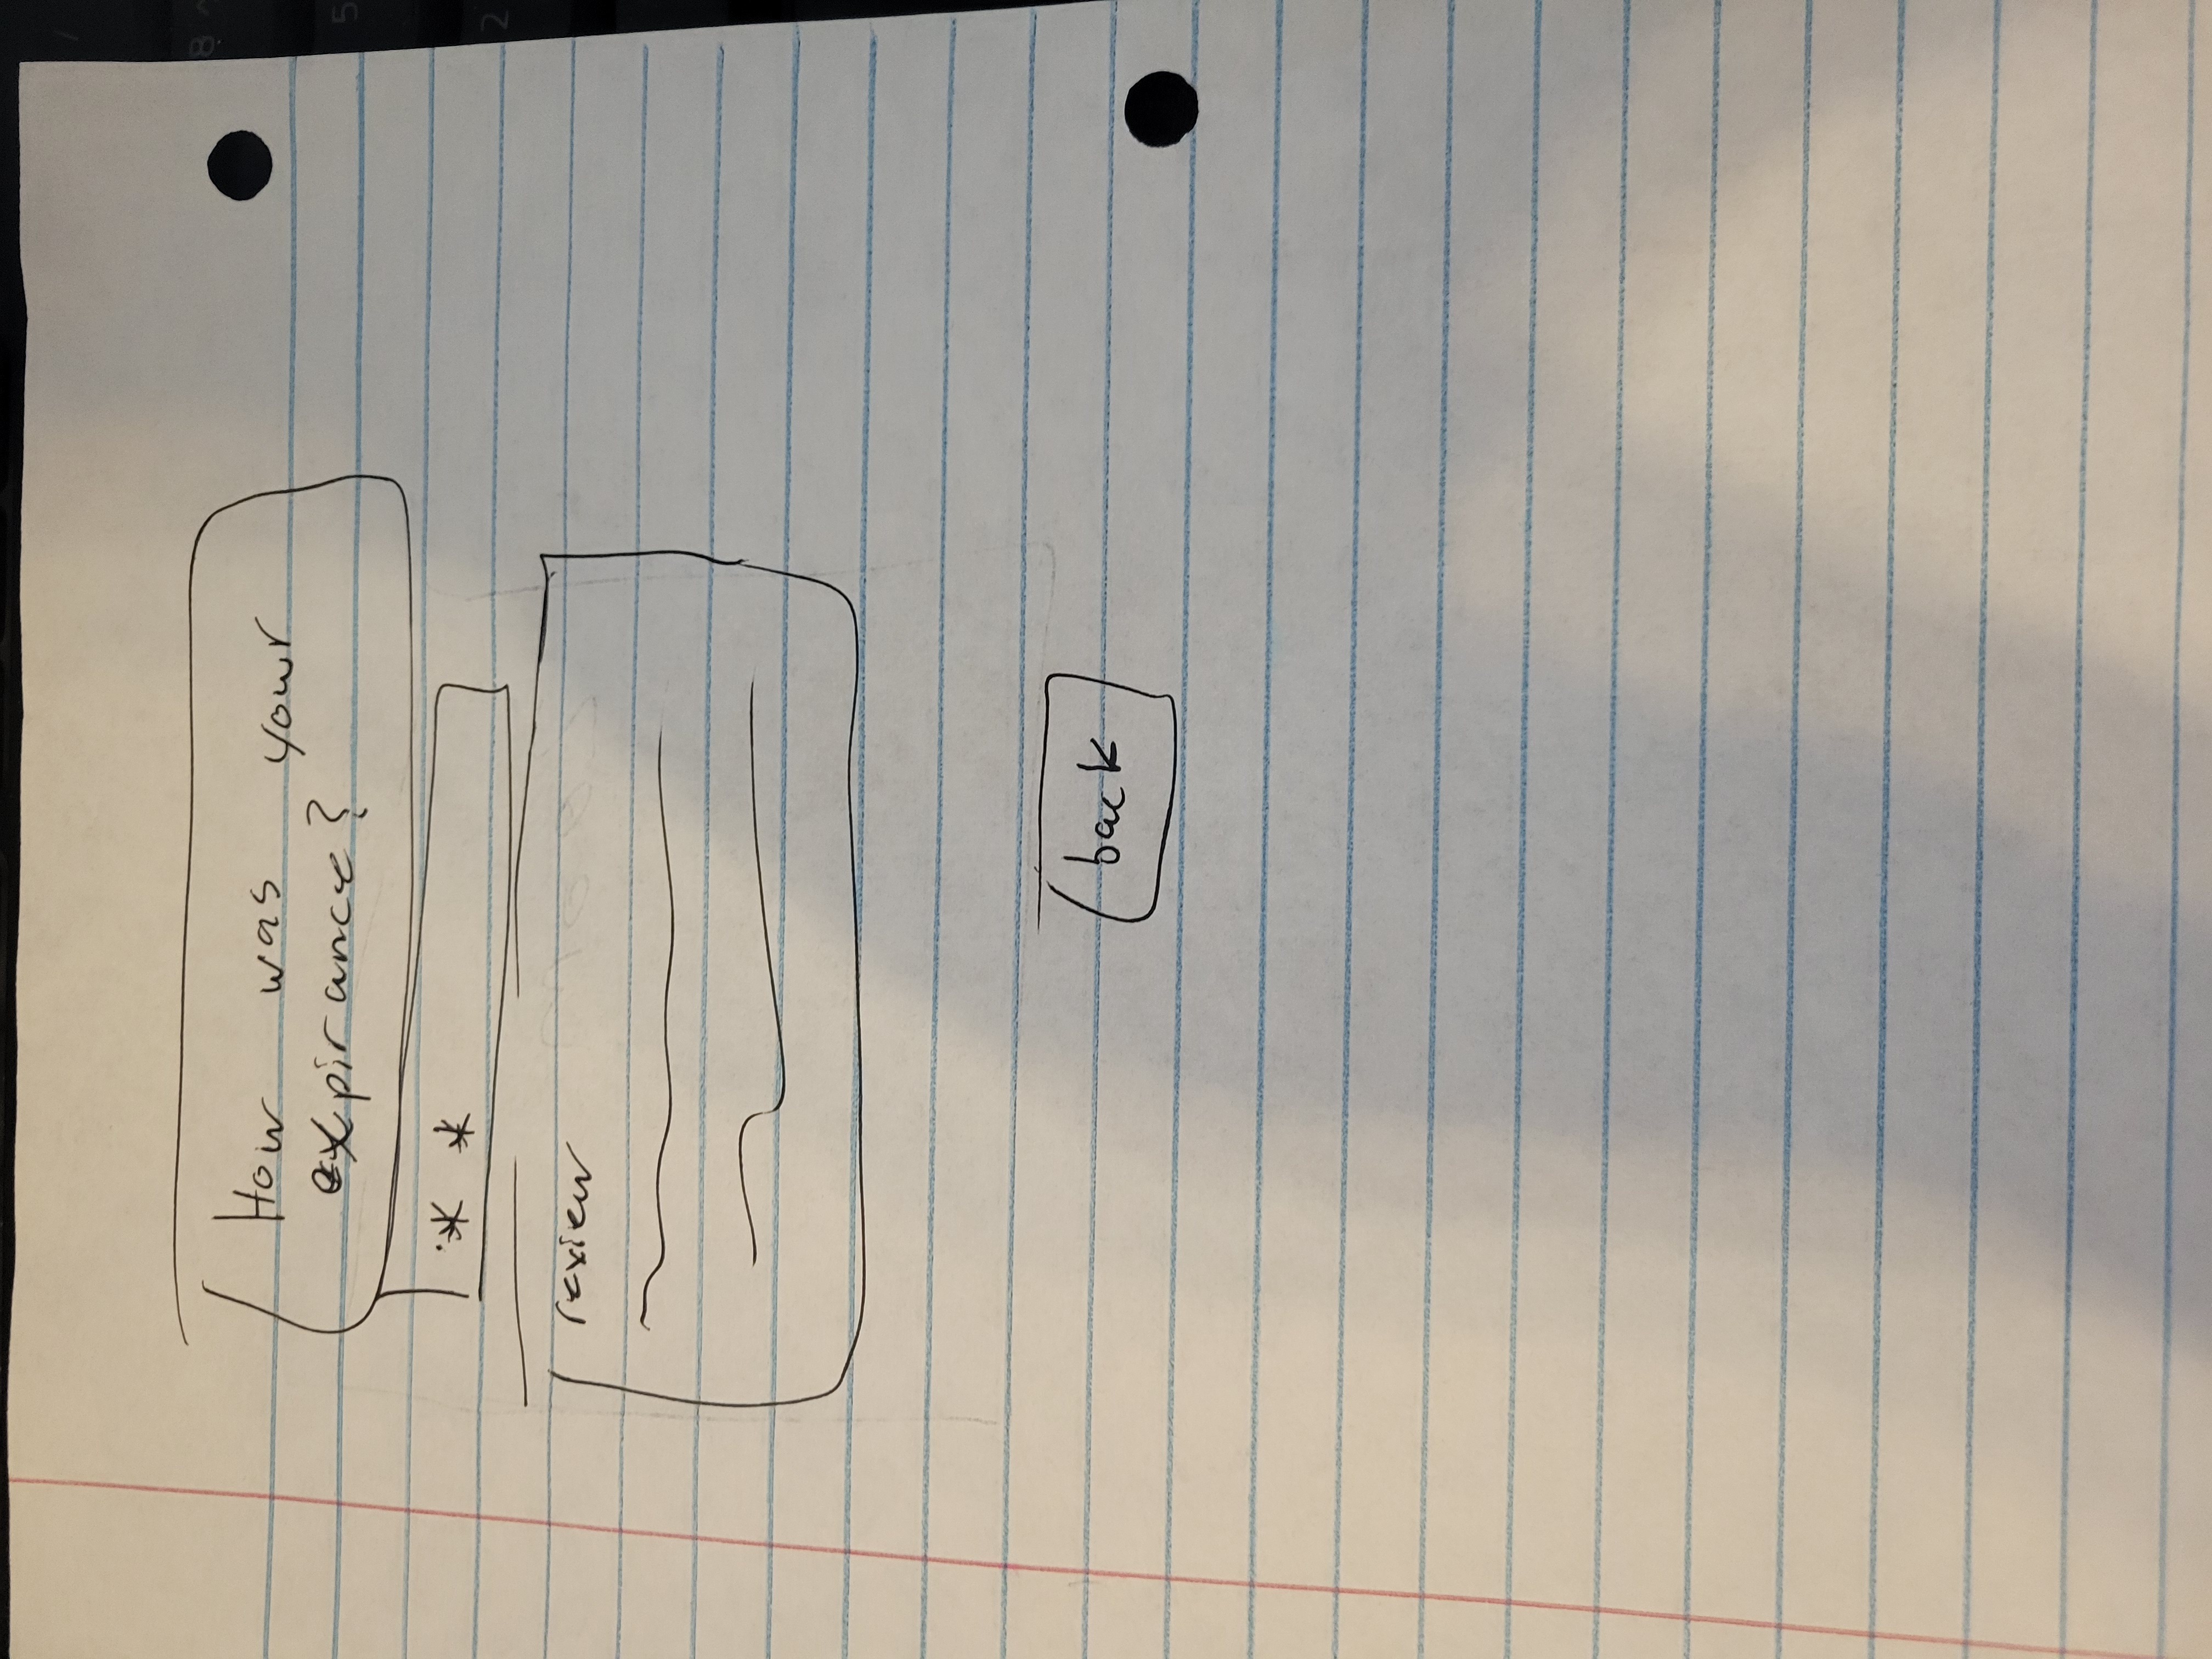 How was your
expirance?
* *
review
back